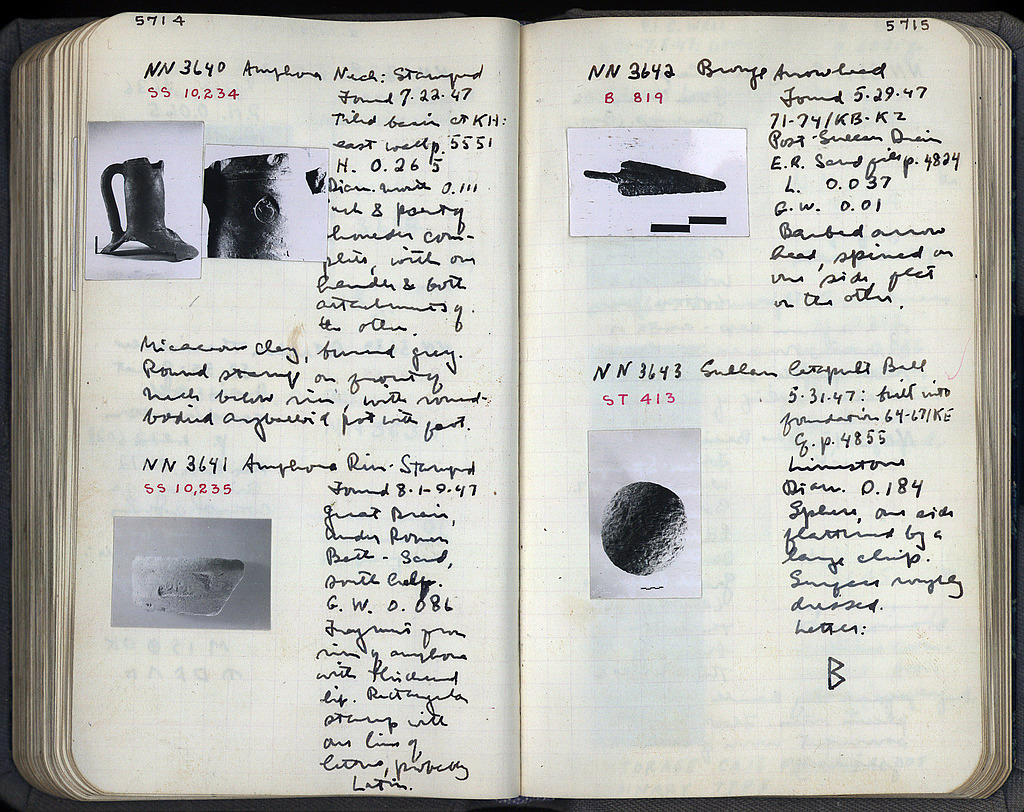 5714
NN 3640 Amphora Neck: Stamped
SS 10,234
Found 7.22.47
Tiled basin at KH:
east well p. 5551
H. 0.265
Diam. mouth 0.111
neck & part of
shoulder com-
plete, with one
handle & both
attachments of
the other.
Micaceous clay, burned grey.
Round stamp on front of
neck below rim, with round-
bodied pot with foot.
NN 3641 Amphora Rim-Stamped
SS 10,235
Found 8-1-9.47
Great Drain,
under Roman
Bath - Sand,
south half.
G. W. 0.086
Fragment from
rim of amphora
with thickened
lip. Rectangular
stamp with
one line of
letters, probably
Latin.
5715
NN 3642 Bronze Arrowhead
B 819
Found 5.29.47
71-74/KB-KZ
Post-Sullan Drain
E.R. Sand fill p. 4824
L. 0.037
G.W. 0.01
Barbed arrow
head, spined on
one side, flat
on the other.
NN 3643 Sullan Catapult Ball
ST 413
5.31.47: built into
foundation 64-67/KE
Cf. p. 4855
Limestone
Diam. 0.184
Sphere, one side
flattened by a
large chip.
Surface roughly
dressed.
Letter:
B